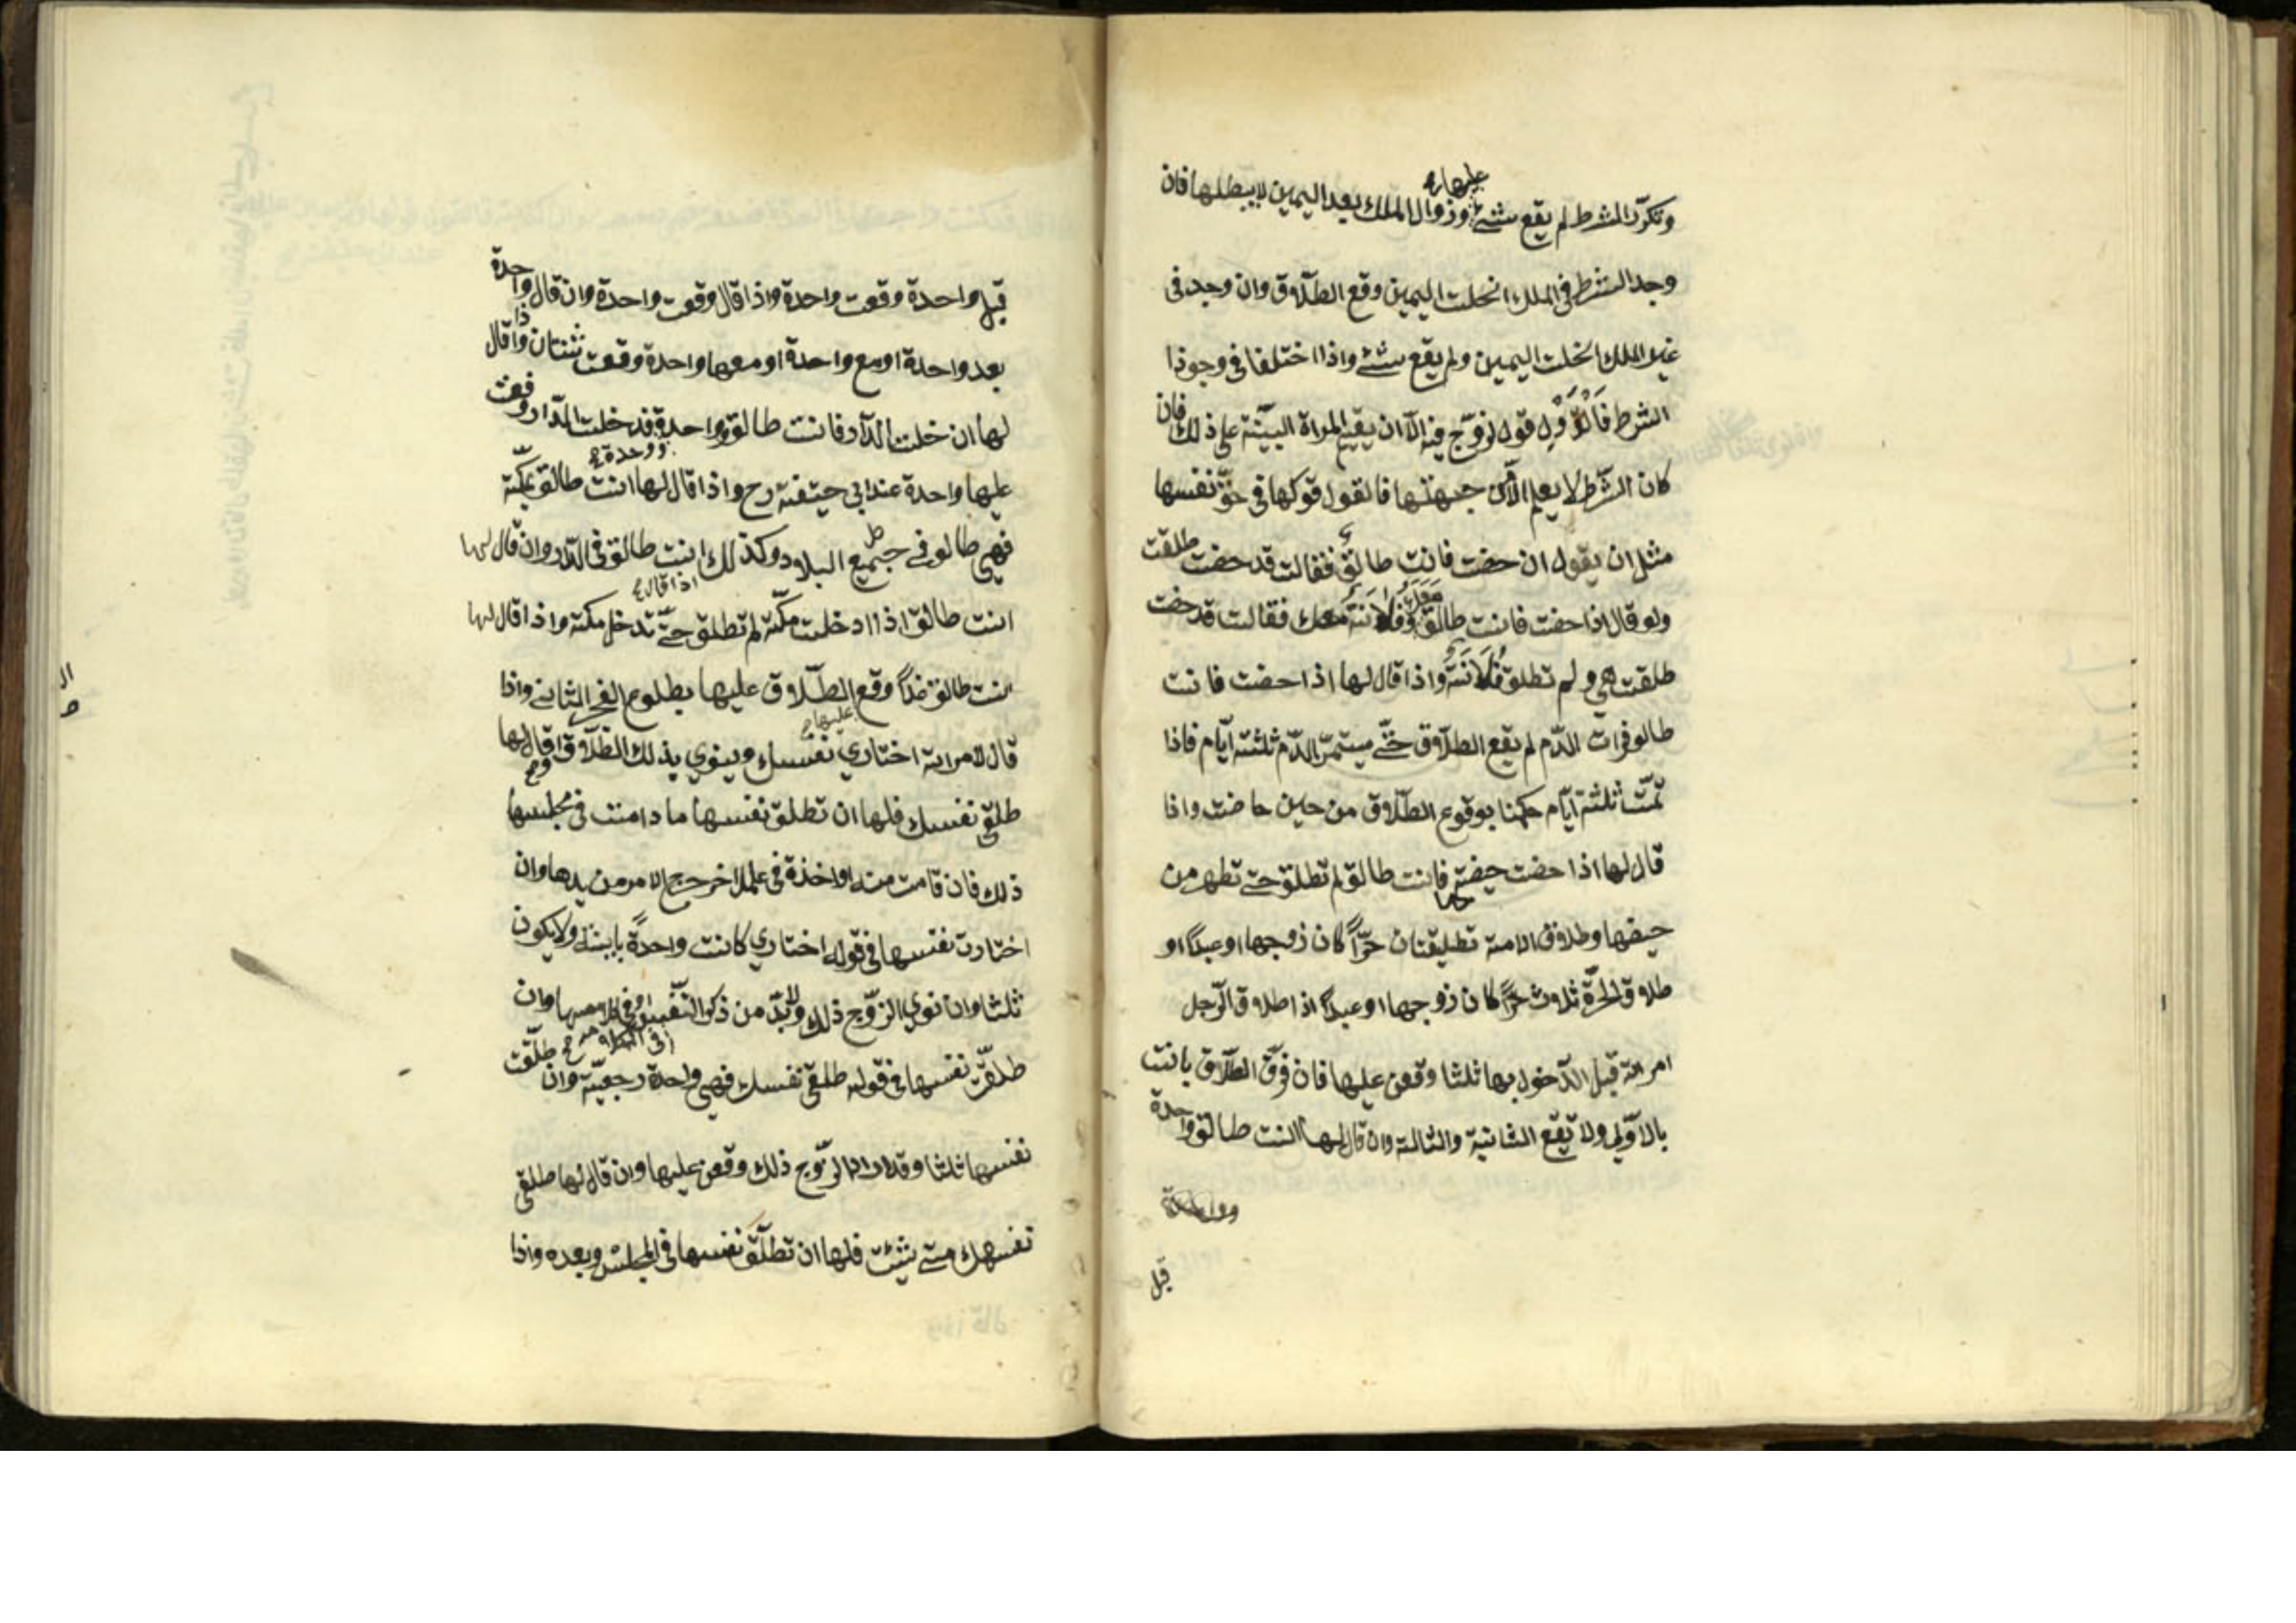 وتكرّر الشرط لم يقع عليها شئ وزوال الملك بعد اليمين لا يبطلها فان
وجد الشرط في الملك انحلت اليمين وقع الطلاق وان وجد في
غير الملك انحلت اليمين ولم يقع شئ واذا اختلفا في وجود
الشرط فالقول قول الزوّج فيه الّا ان يقيم المراة البيّنة على ذلك فان
كان الشّرط لا يعلم الّا من جهتها فالقول قولها في حقّ نفسها
مثل ان يقول ان حضت فانت طالق فقالت قد حضت طلقت
ولو قال اذا حضت فانت طالق وفلانة معك فقالت قد حضت
طلقت هي ولم تطلق فلانة واذا قال لها اذا حضت فانت
طالق فرات الدّم لم يقع الطلاق حتّى يستمرّ الدّم ثلثة ايّام فاذا
تمّت ثلثة ايّام حكمنا بوقوع الطّلاق من حين حاضت واذا
قال لها اذا حضت حيضة فانت طالق لم تطلق حتى تطهر من
حيضها وطلاق الامة تطليقتان حرّاً كان زوجها او عبداً و
طلاق الحرّة ثلاث حرّاً كان زوجها او عبداً اذا طلق الرّجل
امرءته قبل الدّخول بها ثلثا وقعن عليها فان فرّق الطلاق بانت
بالاوّلي ولا يقع الثانية والثالثة وان قال لها انت طالق واحدة
وواحدة
قبل
قبلها واحدة وقعت واحدة واذا قال وقعت واحدة وان قال واحدة
بعد واحدة او مع واحدة او معها واحدة وقعت ثنتان واذا قال
لها ان دخلت الدّار فانت طالق واحدة وواحدة فدخلت الدّار وقعت
عليها واحدة عند ابي حنيفة رح واذا قال لها انت طالق بمكّة
فهي طالق في جميع البلاد وكذلك انت طالق في الدّار وان قال لها
انت طالق اذا دخلت مكّة لم تطلق حتّى تدخل مكة واذا قال لها
انت طالق غداً وقع الطّلاق عليها بطلوع الفجر الثاني واذا
قال لامراته اختاري نفسك وينوي بذلك الطّلاق او قال لها
طلقي نفسك فلها ان تطلق نفسها ما دامت في مجلسها
ذلك فان قامت منه او اخذة في عمل اخر خرج الامر من يدها وان
اختارت نفسها في قوله اختاري كانت واحدةً باينة ولا يكون
ثلثا وان نوي الزوّج ذلك ولا بدّ من ذكر النّفس في كلامه او في كلامها وان
طلقّت نفسها في قوله طلقي نفسك فهي واحدة رجعيّة وان طلّقت
نفسها ثلثا وقد اراد الزوّج ذلك وقعن عليها وان قال لها طلقي
نفسك متى شئت فلها ان تطلّق نفسها في المجلس وبعده واذا